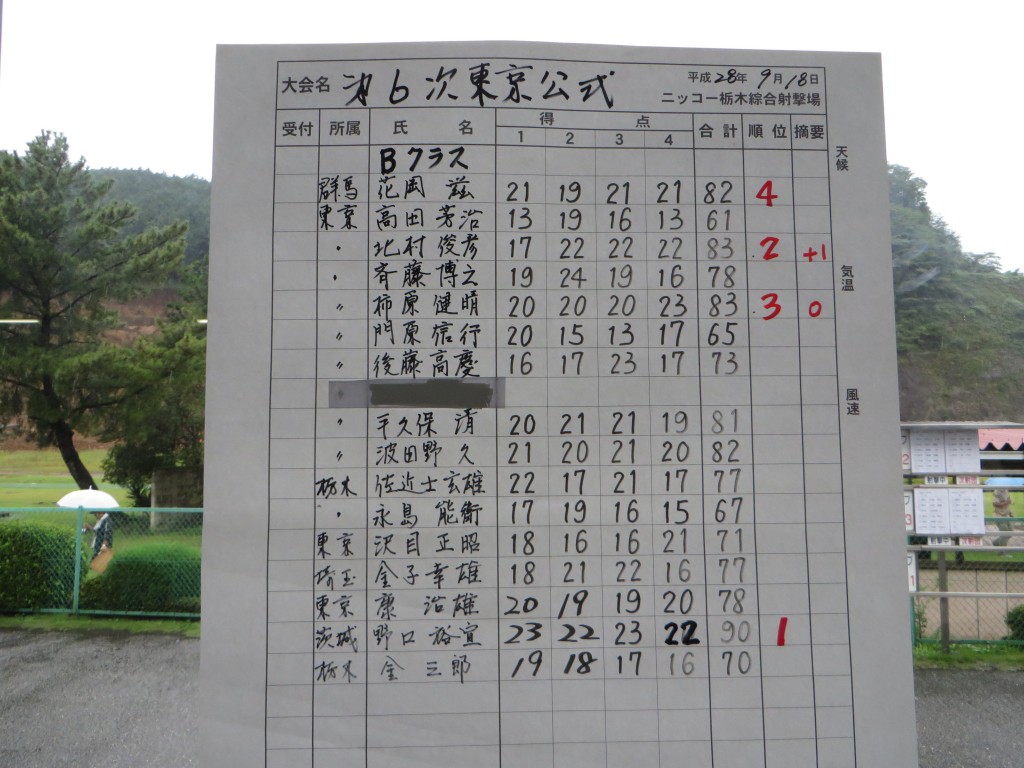 大会名 オ6次東京公式 平成28年 9月18日
ニッコー栃木綜合射撃場
受付 所属 氏名 得点 合計 順位 摘要
1 2 3 4
Bクラス
群馬 花岡 玆 21 19 21 21 82 4
東京 高田芳治 13 19 16 13 61
〃 北村俊彦 17 22 22 22 83 2 +1
〃 斉藤博之 19 24 19 16 78
〃 柿原健晴 20 20 20 23 83 3 0
〃 門原信行 20 15 13 17 65
〃 後藤高慶 16 17 23 17 73
〃 平久保 清 20 21 21 19 81
〃 波田野 久 21 20 21 20 82
栃木 佐近士玄雄 22 17 21 17 77
〃 永島 能衛 17 19 16 15 67
東京 沢目正昭 18 16 16 21 71
埼玉 金子幸雄 18 21 22 16 77
東京 康 治雄 20 19 19 20 78
茨城 野口裕宣 23 22 23 22 90 1
栃木 金 三郎 19 18 17 16 70
天候
気温
風速